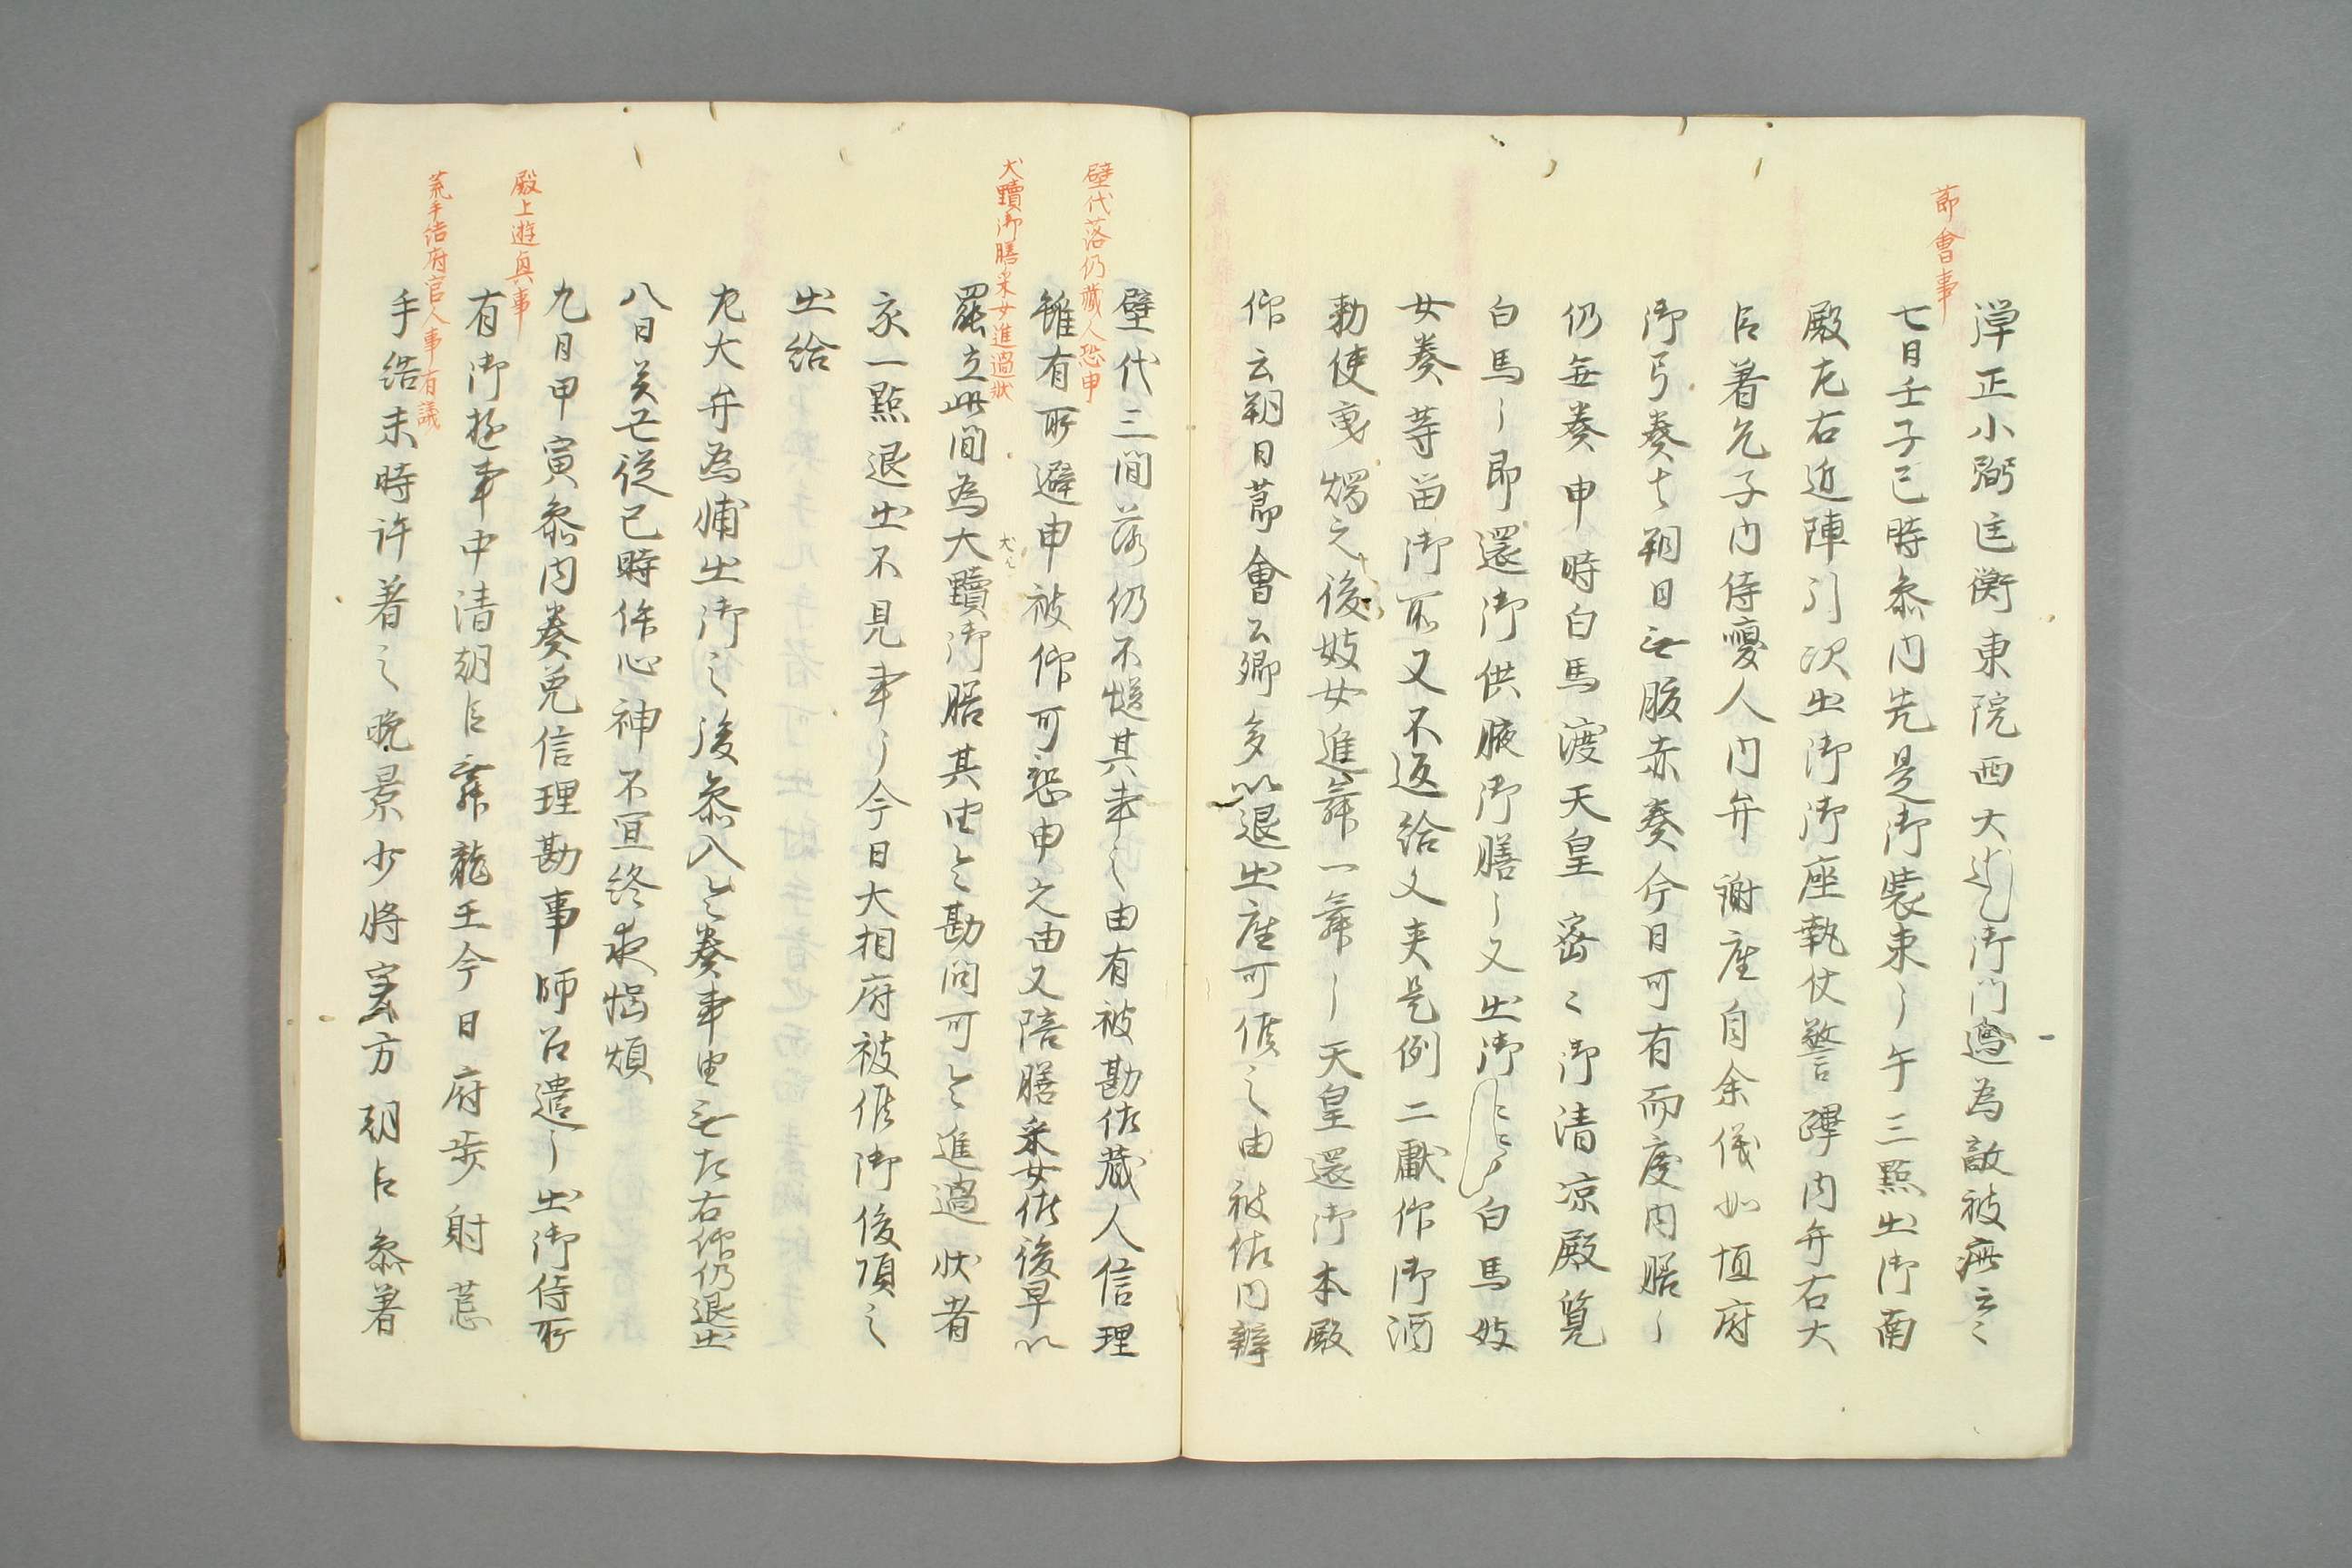 節會事
彈正小弼匡衡東院西大御門邊為敵被疵云々
七日壬子巳時參内先是御装束〻午三點出御南
殿左右近陣引次出御御座執仗警蹕内弁右大
臣着兀子内侍
人内弁謝座自余儀如恒府
御弓奏
朔日
腋赤奏今日可有而度内膳〻
仍無奏申時白馬渡天皇密々御清凉殿覧
白馬〻即還御供腋御膳〻又出御
白馬妓
女奏等留御所又不返給文夾是例二獻仰御酒
勅使
之後妓女進舞一舞〻天皇還御本殿
仰云朔日節會公卿多以退出座可候之由被
内辨
壁代落仍藏人恐申
犬黷御膳采女進過狀
壁代三間落仍不
其事之由有被勘
藏人信理
雖有所避申被仰可恐申之由又陪膳采女
後早以
罷立此間為犬黷御膳其由令勘問可令進過状者
亥一點退出不見事〻今日大相府被候御後頃之
出給
左大弁為
出御之後參入令奏事由
左右仰仍退出
八日癸丑從巳時許心神不宜終夜惱煩
殿上遊興事
九日甲寅參内奏免信理勘事師召遣〻出御侍所
有御遊事中清朝臣舞龍王今日府步射荒
荒手結府官人事有議
手結未時許着之晚景少將實方朝臣參著